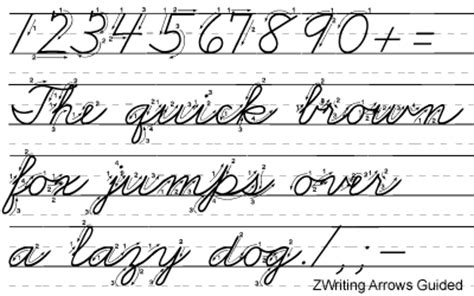 1234567890+=
The quick brown
fox jumps over
a lazy dog./,;-
ZWriting Arrows Guided